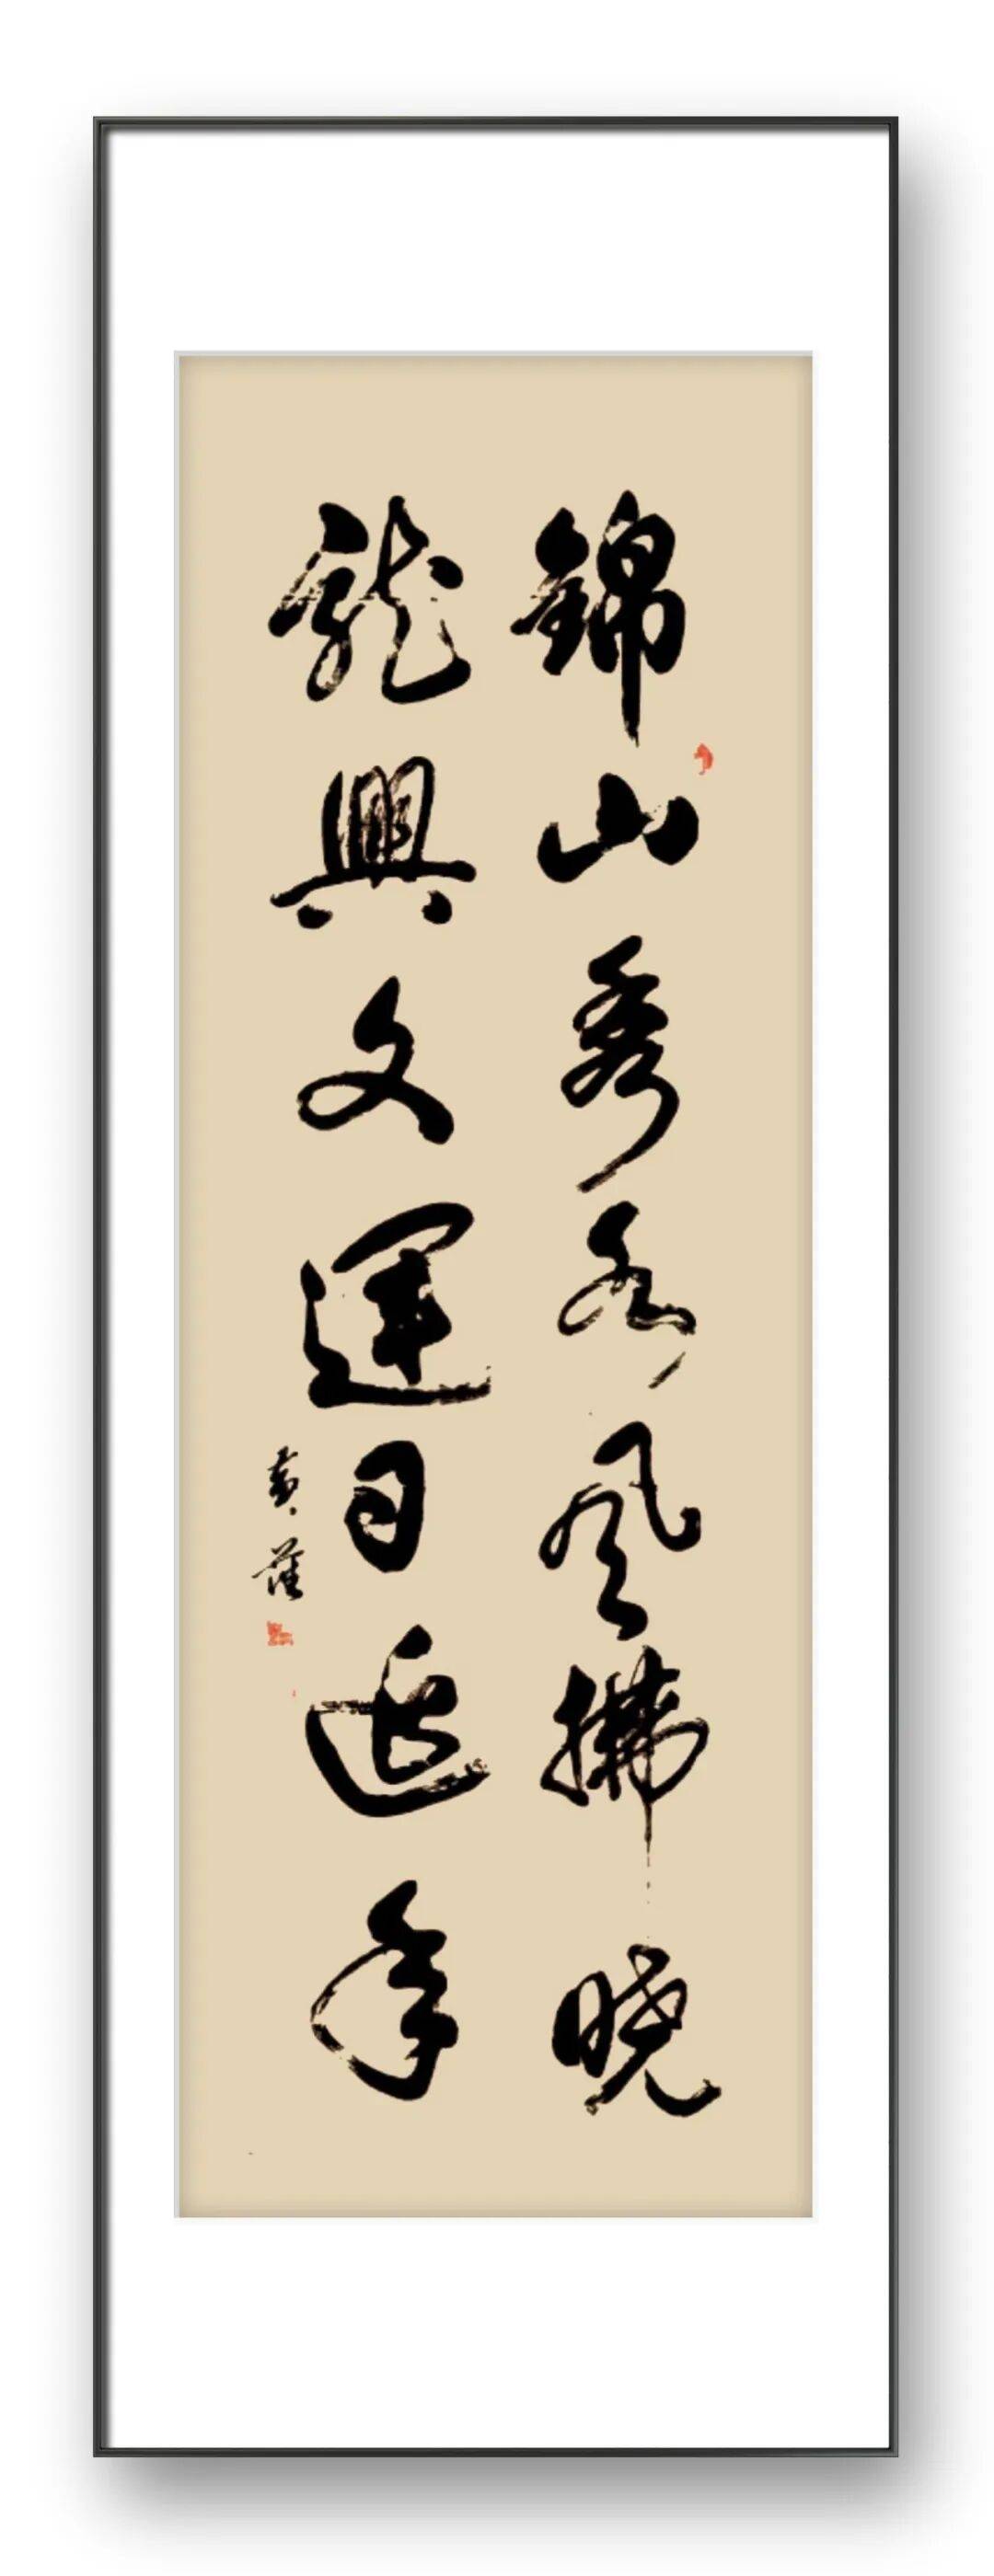 錦山秀水風拂曉
龍興文運日近年
黃